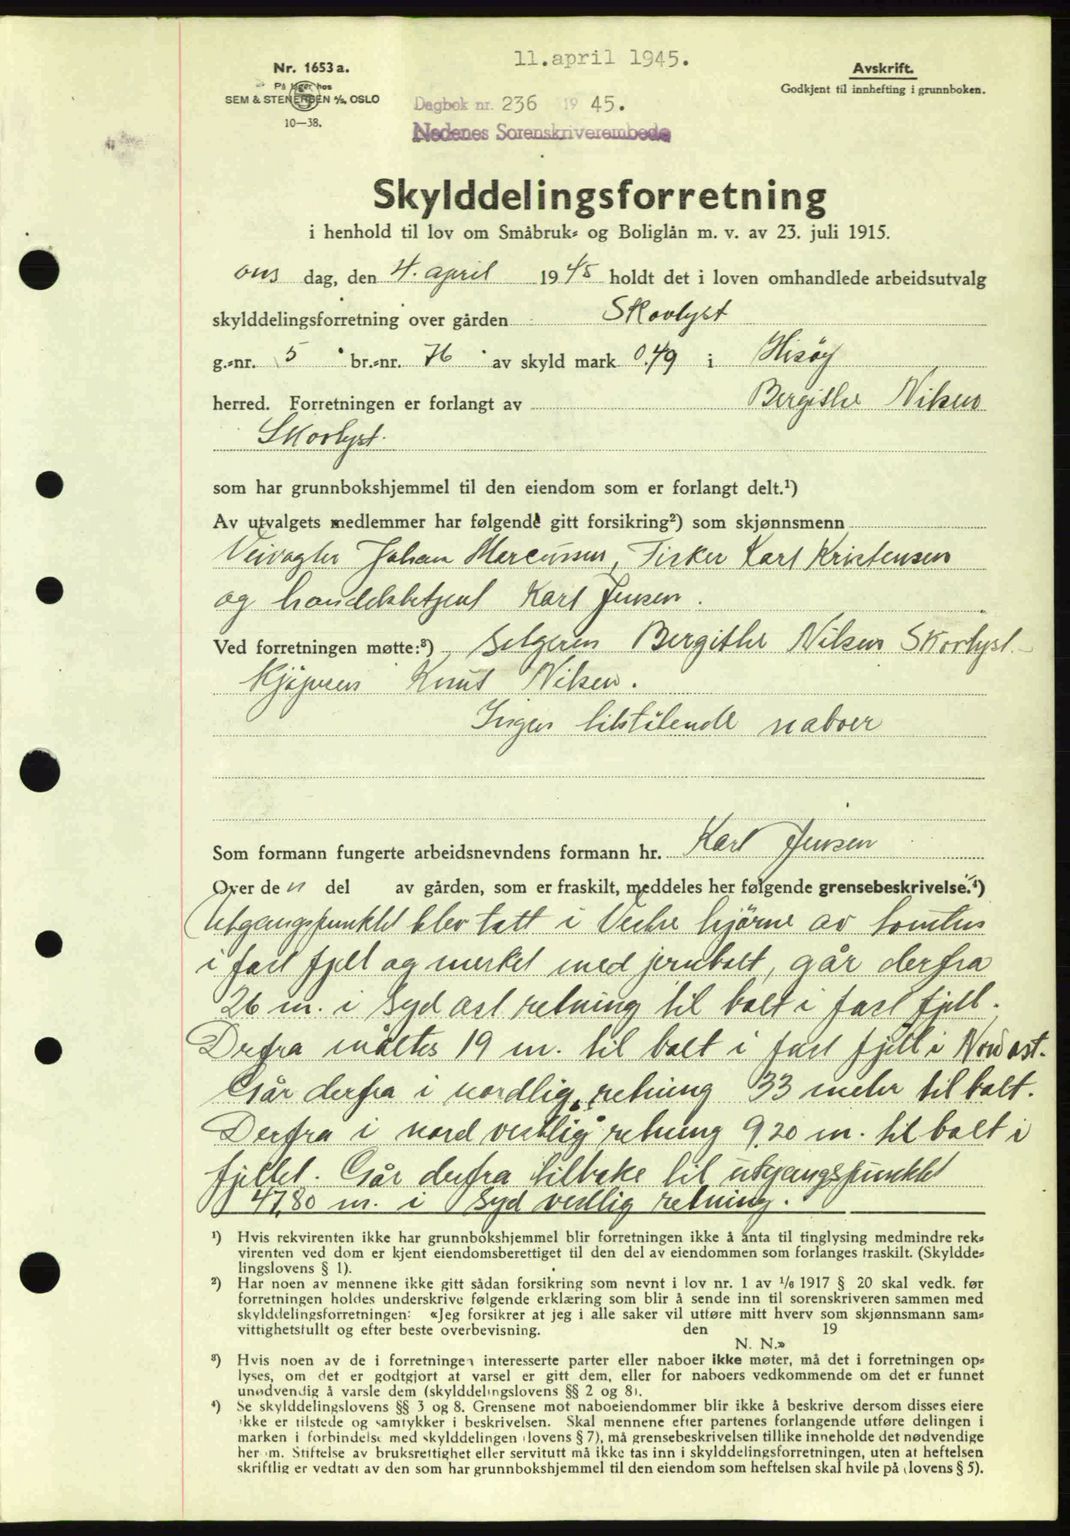 11.april 1945.
Nr. 1653 a.
På lager hos
SEM & STENERSEN A/S, OSLO
10—38.
Avskrift.
Godkjent til innhefting i grunnboken.
Dagbok nr. 236 1945.
Nedenes Sorenskriverembede
Skylddelingsforretning
i henhold til lov om Småbruk- og Boliglån m. v. av 23. juli 1915.
ons dag, den 4. april 1945 holdt det i loven omhandlede arbeidsutvalg
skylddelingsforretning over gården Skovlyst
g.-nr. 5 br.-nr. 76 av skyld mark 0.49 i Hisøy
herred. Forretningen er forlangt av Bergithe Nilsen
Skovlyst.
som har grunnbokshjemmel til den eiendom som er forlangt delt.¹)
Av utvalgets medlemmer har følgende gitt forsikring²) som skjønnsmenn
Veivogter Johan Marcussen, Fisker Karl Kristensen
og handelsbetjent Karl Jensen.
Ved forretningen møtte:³) Selgeren Bergithe Nilsen Skovlyst.
Kjøperen Knut Nilsen.
Ingen tilstøtende naboer
Som formann fungerte arbeidsnevndens formann hr. Karl Jensen
Over den del av gården, som er fraskilt, meddeles her følgende grensebeskrivelse.⁴)
Utgangspunktet blev tatt i Vestre hjørne av tomten
i fast fjell og merket med jernbolt, går derfra
26 m. i Syd ost retning til bolt i fast fjell.
Derfra måltes 19 m. til bolt i fast fjell i Nord ost.
Går derfra i nordlig retning 33 meter til bolt.
Derfra i nord vestlig retning 9,20 m. til bolt i
fjellet. Går derfra tilbake til utgangspunktet
47,80 m. i Syd vestlig retning.
¹) Hvis rekvirenten ikke har grunnbokshjemmel blir forretningen ikke å anta til tinglysing medmindre rek-
virenten ved dom er kjent eiendomsberettiget til den del av eiendommen som forlanges fraskilt. (Skyldde-
lingslovens § 1).
²) Har noen av mennene ikke gitt sådan forsikring som nevnt i lov nr. 1 av 1/6 1917 § 20 skal vedk. før
forretningen holdes underskrive følgende erklæring som blir å sende inn til sorenskriveren sammen med
skylddelingsforretningen: «Jeg forsikrer at jeg i alle saker vil utføre mitt hverv som skjønnsmann sam-
vittighetsfullt og efter beste overbevisning. den 19
N. N.»
³) Hvis noen av de i forretningen interesserte parter eller naboer ikke møter, må det i forretningen op-
lyses, om det er godtgjort at varsel er gitt dem, eller for naboers vedkommende om det er funnet
unødvendig å varsle dem (skylddelingslovens §§ 2 og 8).
⁴) Se skylddelingslovens §§ 3 og 8. Grensene mot naboeiendommer blir ikke å beskrive dersom disses eiere
ikke er tilstede og samtykker i beskrivelsen. Skal mennene efter partenes forlangende utføre delingen i
marken i forbindelse med skylddelingen (lovens § 7), må grensebeskrivelsen tillike inneholde det nødvendige
her om. Stiftelse av bruksrettighet eller servitutt må ikke tas inn i skylddelingsforretningen, uten at heftelsen
skriftlig er vedtatt av den som har grunnbokshjemmel til den eiendom som heftelsen skal hvile på (lovens § 5).